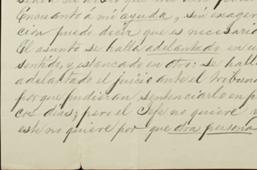 Encuanto a mi ayuda, y sin exagera-
ción puedo decir que es necesaria
El asunto se halla adelantado en un
sentido, y estancado en otro: se halla
adelantado el juicio ante el tribunal
porque pudieran sentenciarlo en po-
cos dias; pero el Jefe no quiere y
este no quiere por que otra persona